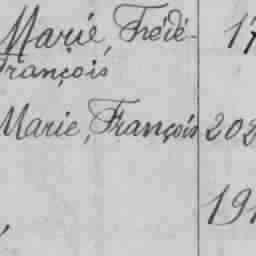 Marie, Frédé- 17
François
Marie, François 202
191